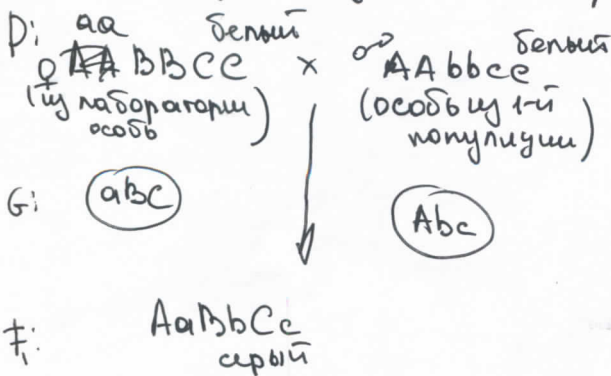 P: aa белый белый
♀ AA BBCC x ♂ AAbbcc
(из лаборатории особь) (особь из 1-й популяции)
G: aBC Abc
F₁: AaBbCc
серый